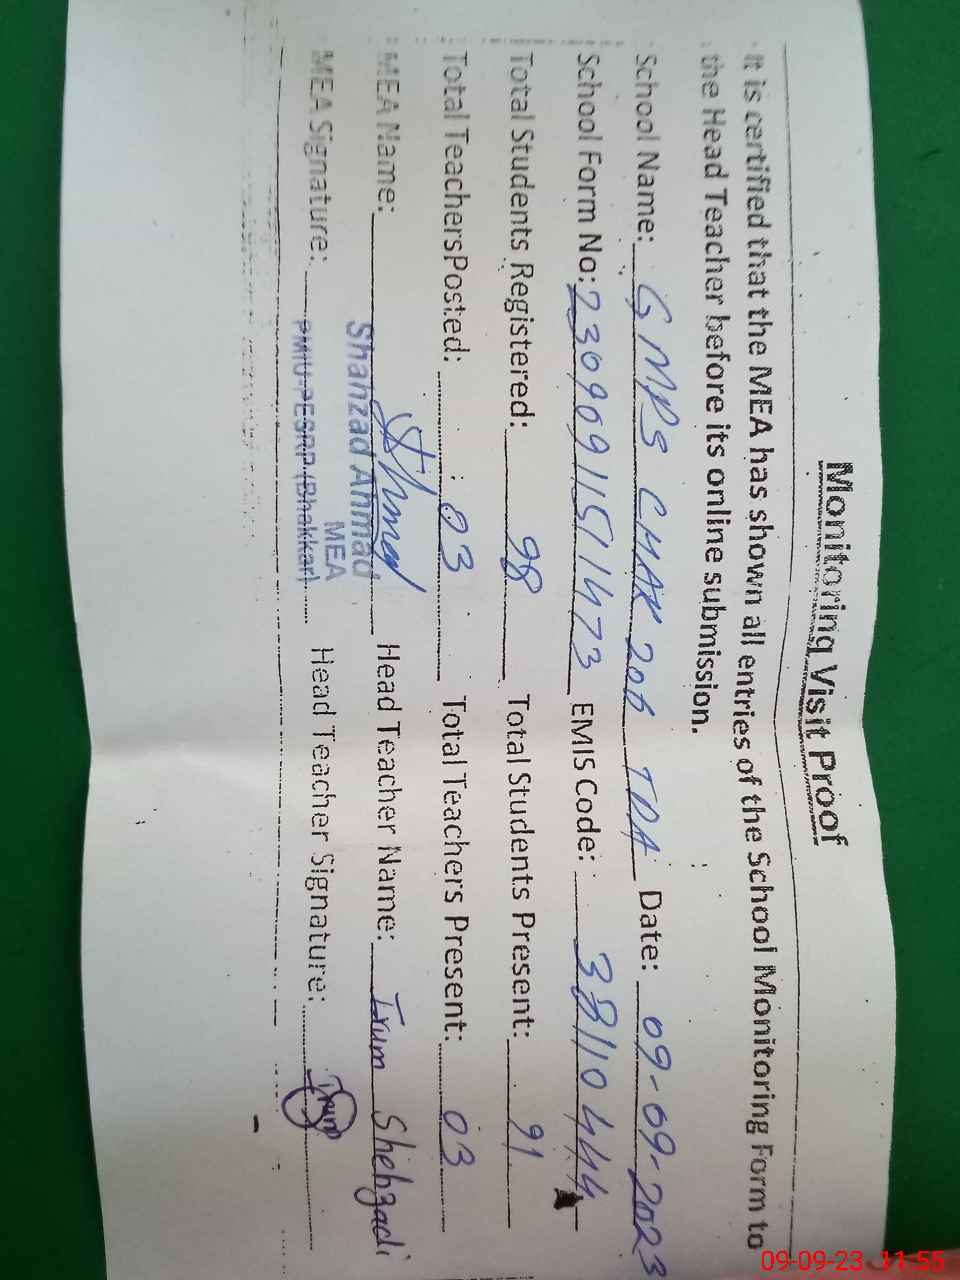 Monitoring Visit Proof
It is certified that the MEA has shown all entries of the School Monitoring Form to
the Head Teacher before its online submission.
School Name: GMPS CHAK 206 TDA Date: 09-09-2023
School Form No: 2309091151473 EMIS Code: 38110444
Total Students Registered: 98 Total Students Present: 91
Total TeachersPosted: 03 Total Teachers Present: 03
MEA Name: Shahzad Ahmad Head Teacher Name: Irum Shehzadi
MEA
MEA Signature: PMIU-PESRP (Bhakkar) Head Teacher Signature: Irum
09-09-23 11:55